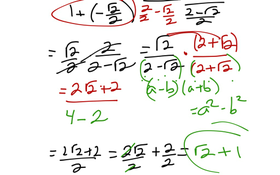 1 + (-√2/2) 2/2 - √2/2 (2-√2)/2
= √2/2 · 2/(2-√2) = √2/(2-√2) · (2+√2)/(2+√2)
= (2√2+2)/(4-2) (a-b)(a+b)
= a² - b²
= (2√2+2)/2 = 2√2/2 + 2/2 = √2 + 1